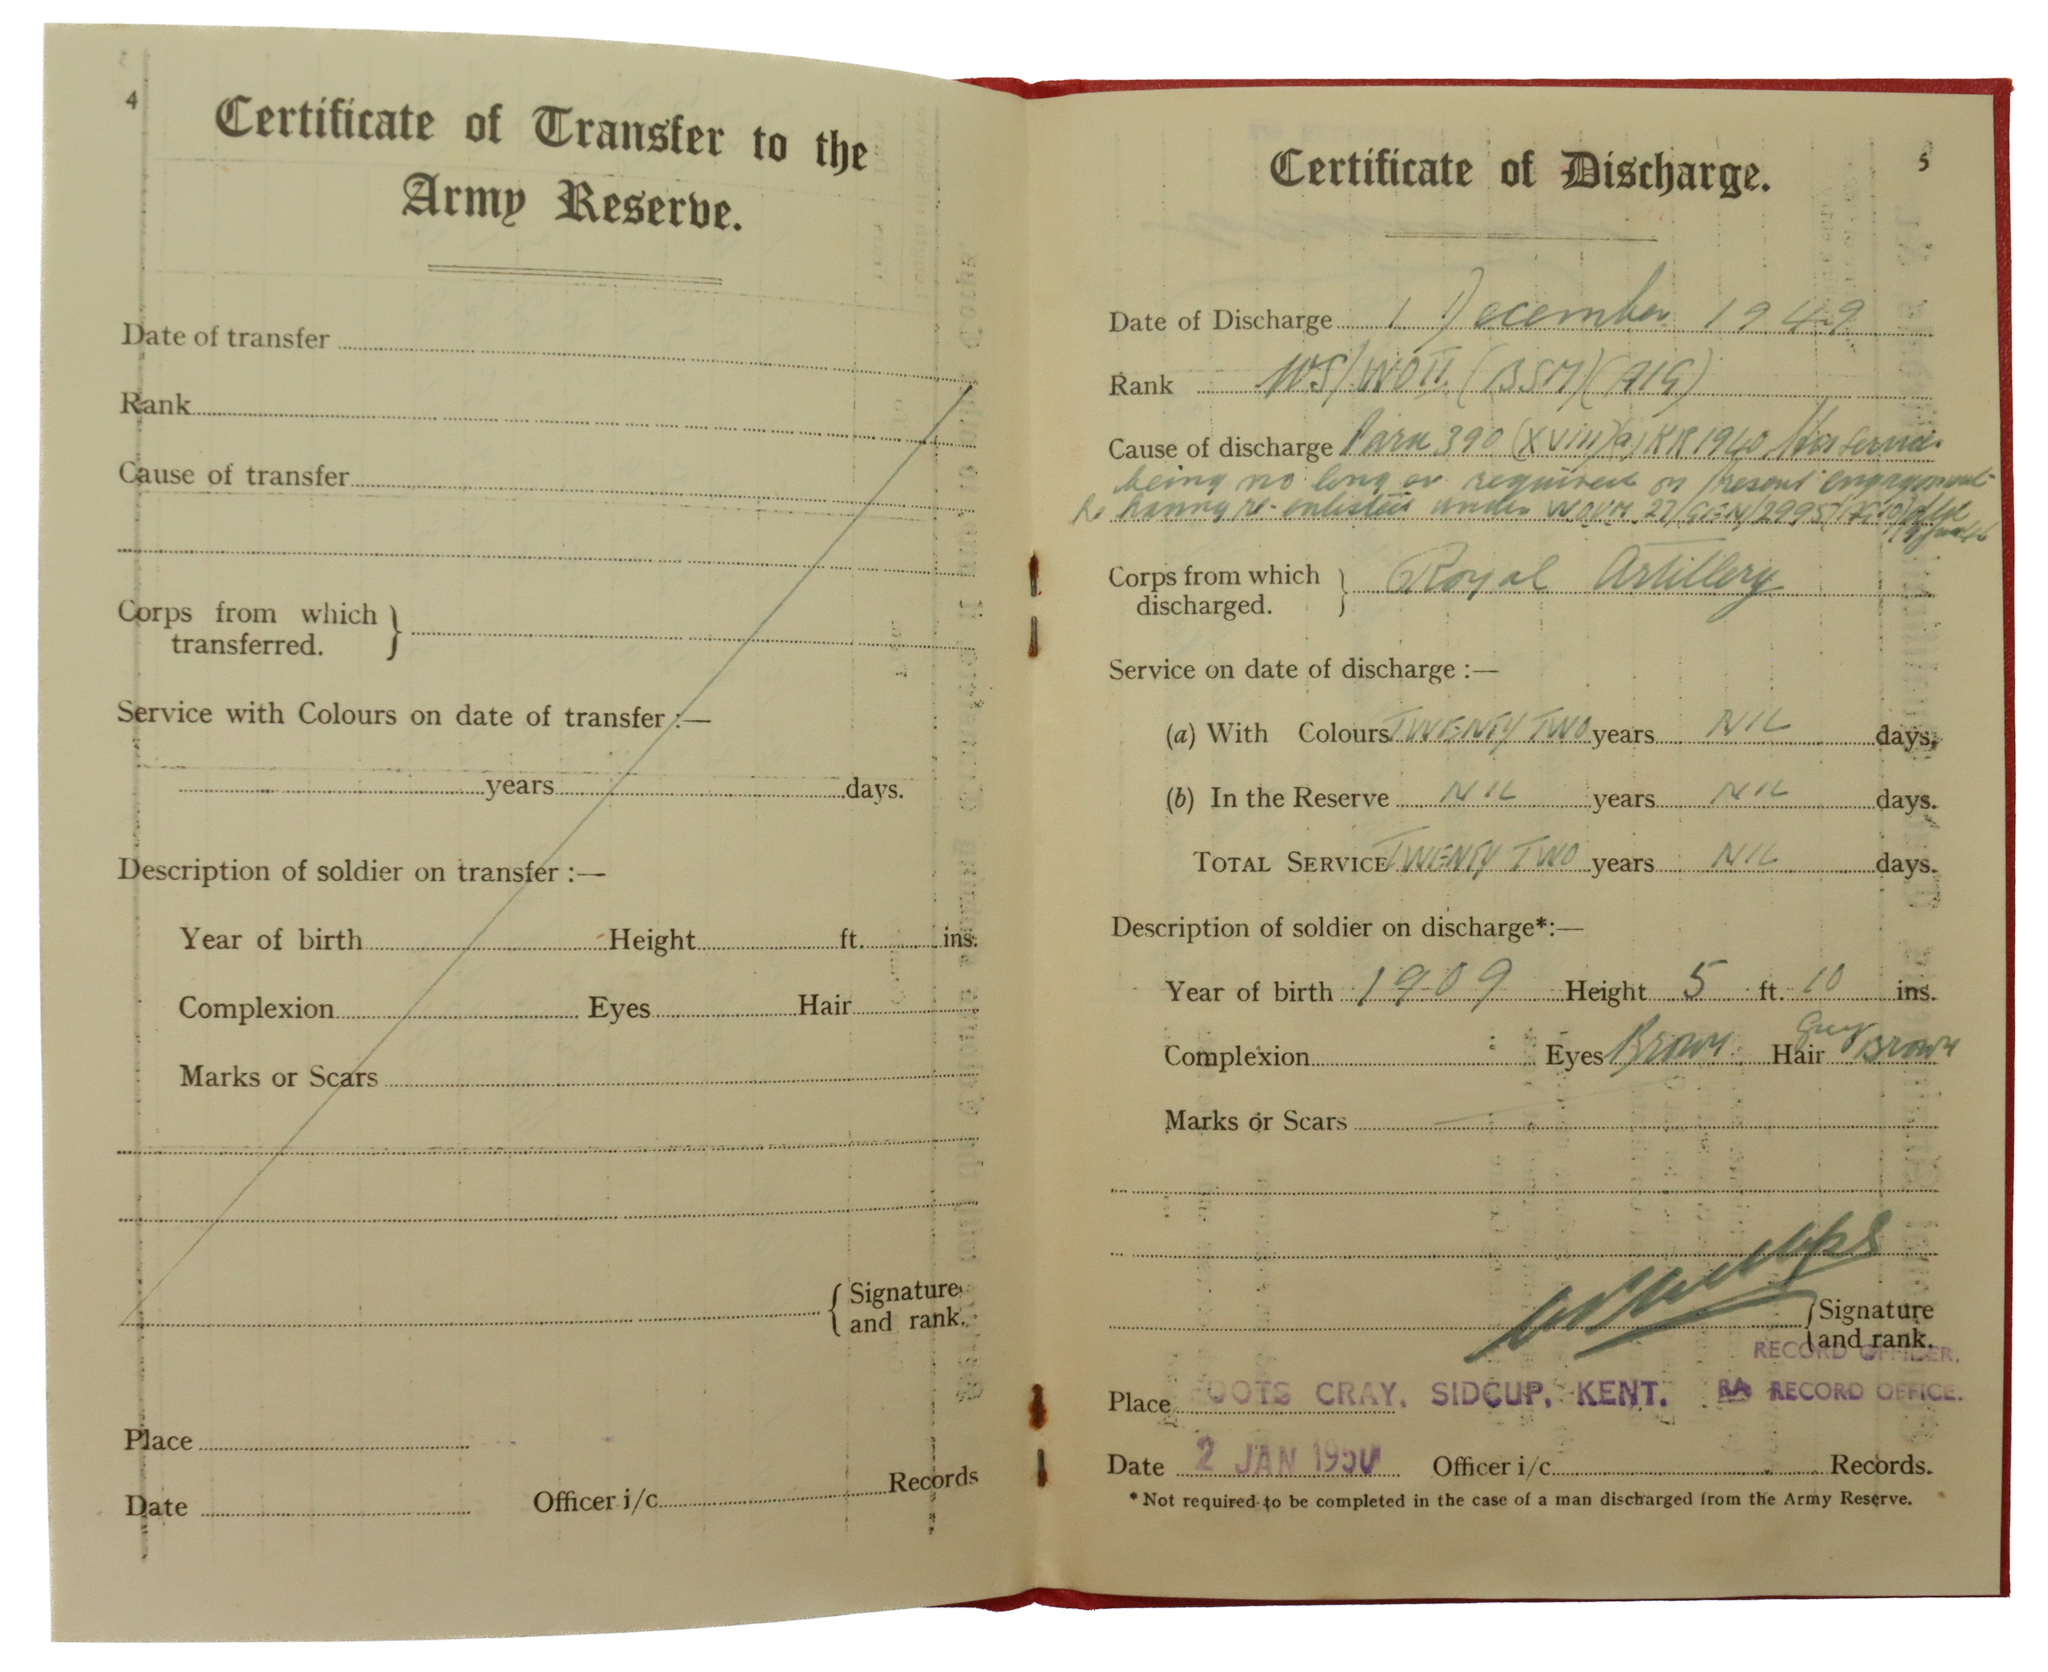 4
Certificate of Transfer to the
Army Reserve.
Date of transfer
Rank
Cause of transfer
Corps from which
transferred.
Service with Colours on date of transfer :—
years days.
Description of soldier on transfer :—
Year of birth Height ft. ins.
Complexion Eyes Hair
Marks or Scars
Signature
and rank.
Place
Date Officer i/c Records
5
Certificate of Discharge.
Date of Discharge 1 December 1949
Rank WS/WOII (BSM) (AIG)
Cause of discharge Para 390 (XVIII)(a) KR 1940. His service
being no longer required on present engagement
he having re-enlisted under WOUM 27/GEN/2995
Corps from which
discharged. Royal Artillery
Service on date of discharge :—
(a) With Colours TWENTY TWO years NIL days.
(b) In the Reserve NIL years NIL days.
TOTAL SERVICE TWENTY TWO years NIL days.
Description of soldier on discharge*:—
Year of birth 1909 Height 5 ft. 10 ins.
Complexion Eyes Brown Hair Grey Brown
Marks or Scars
Signature
and rank.
RECORD OFFICER.
Place FOOTS CRAY, SIDCUP, KENT. RA RECORD OFFICE.
Date 2 JAN 1950 Officer i/c Records.
* Not required to be completed in the case of a man discharged from the Army Reserve.